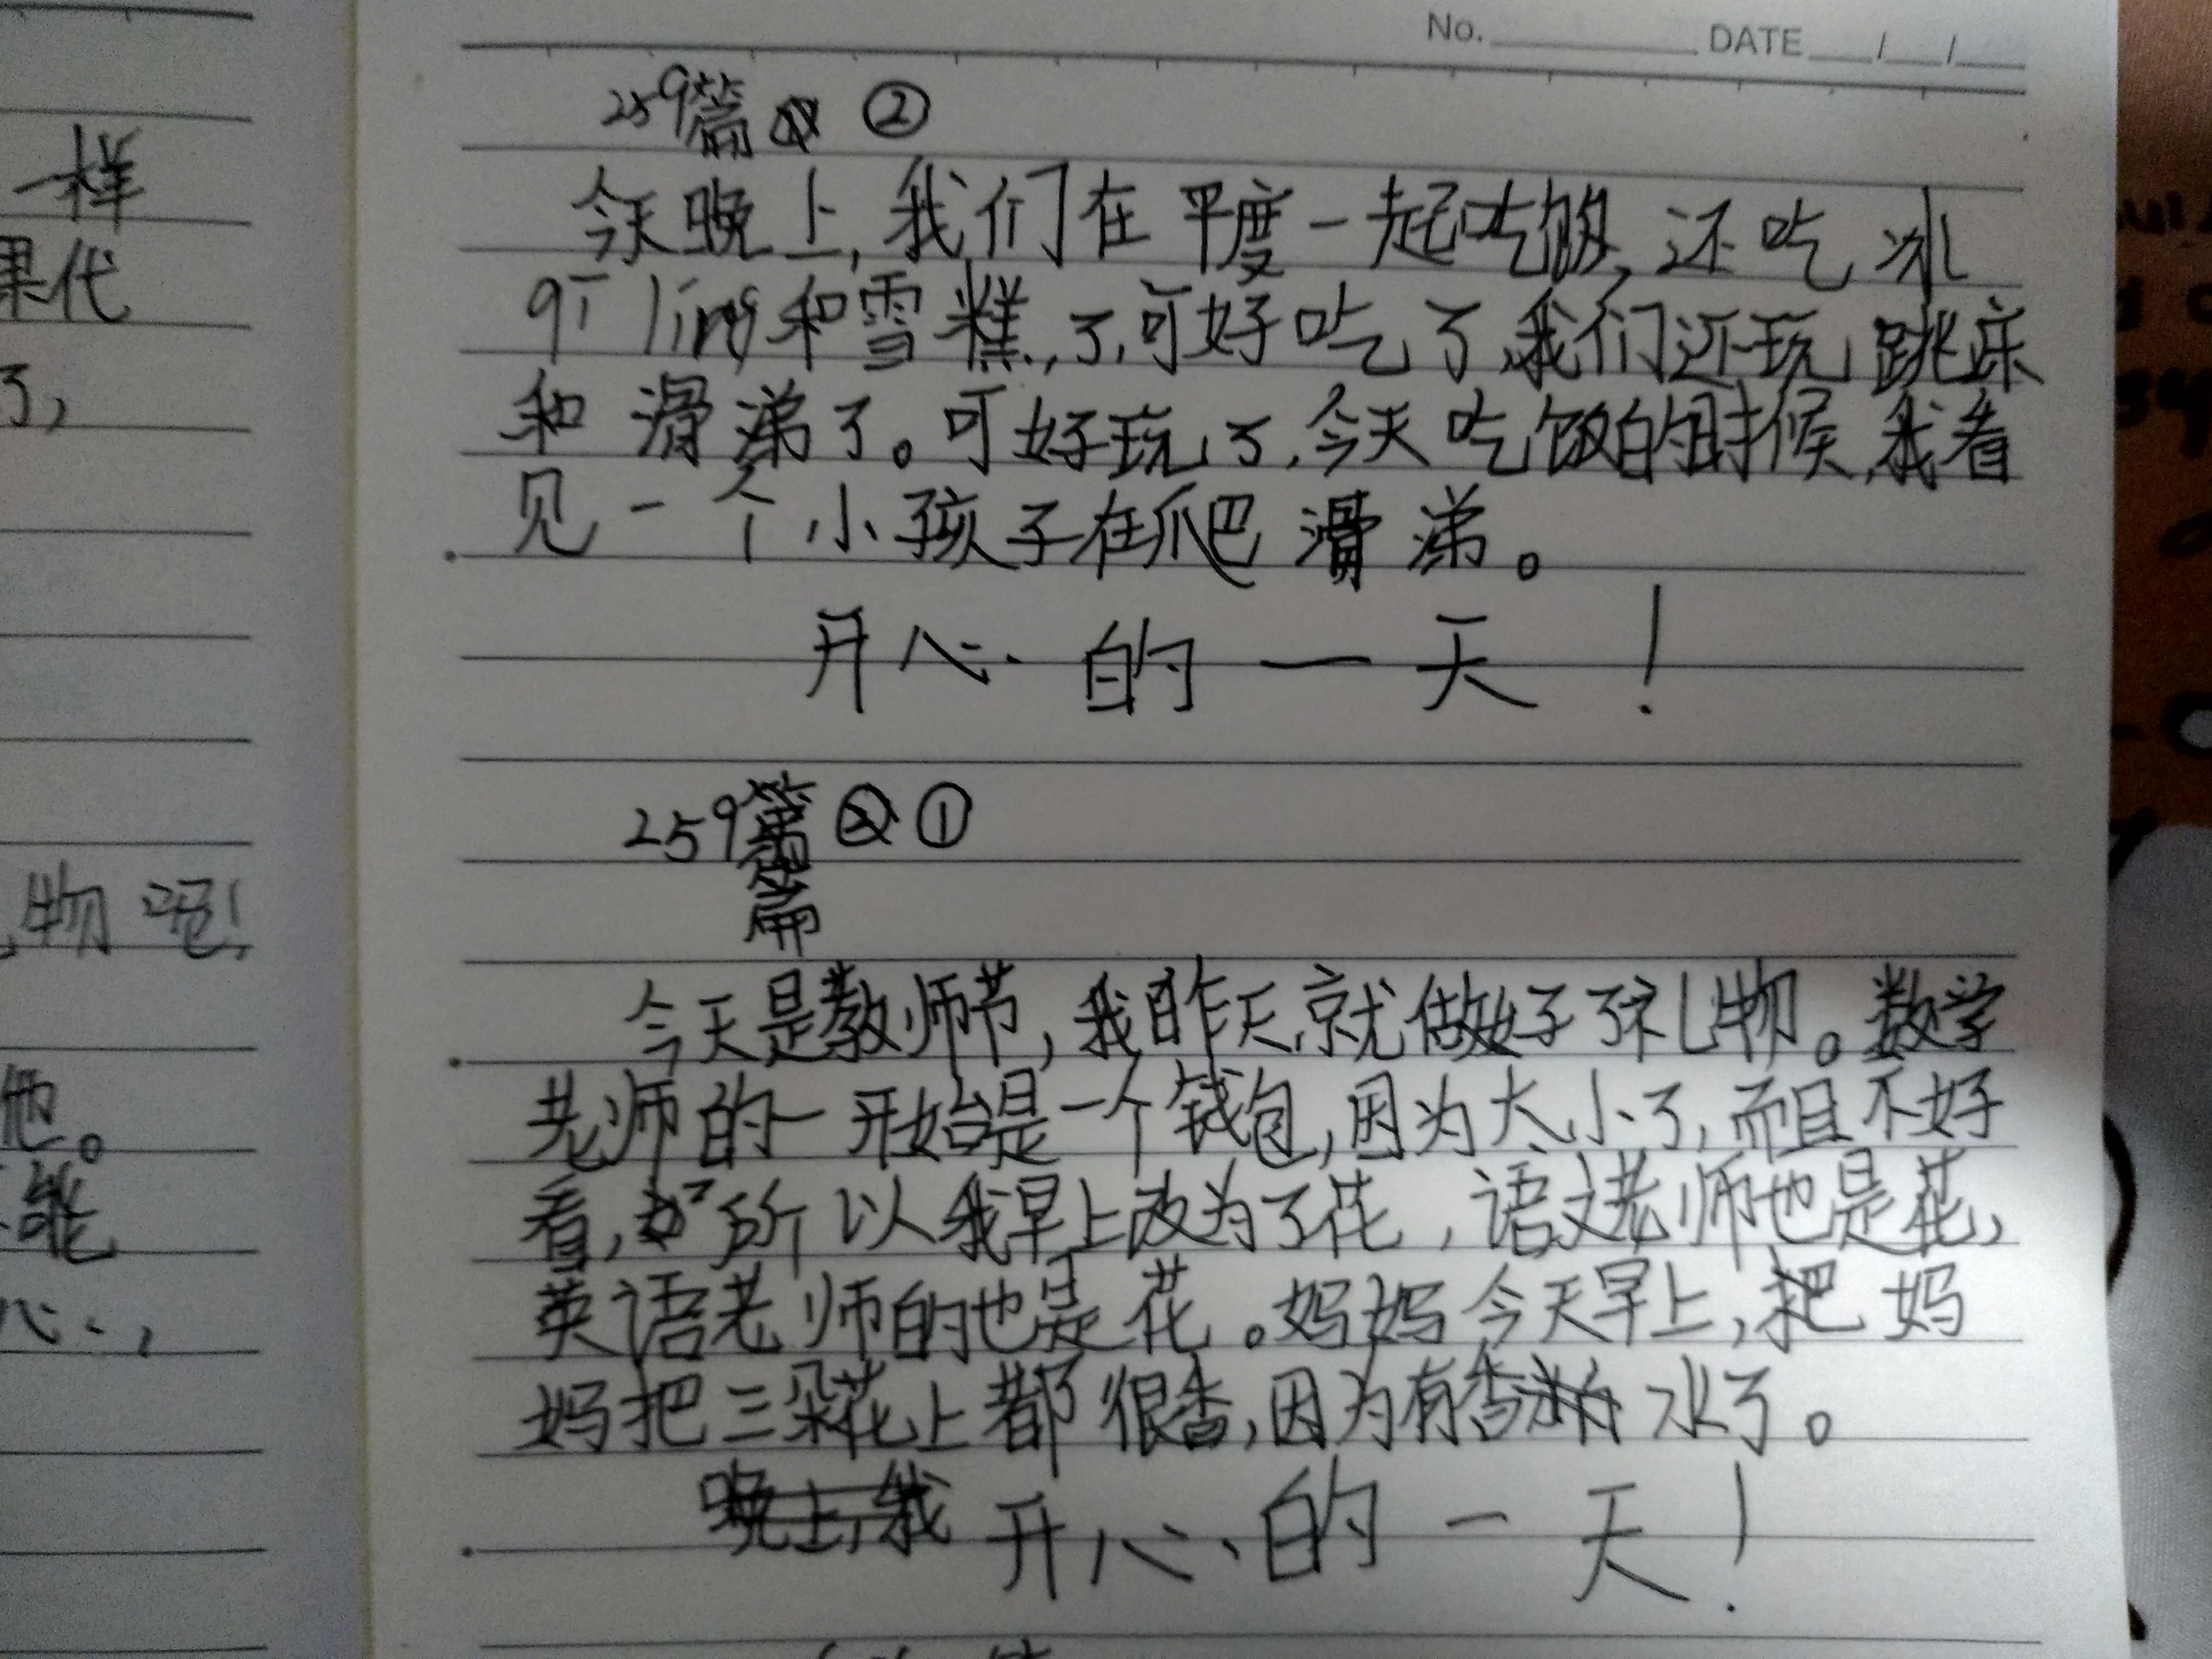 一样
果代
了,
物吧!
他。
能
心,
No. DATE / /
259篇 ②
今天晚上,我们在平度一起吃饭,还吃冰
qí líng和雪糕,了,可好吃了,我们还玩跳床
和滑涕了。可好玩了,今天吃饭的时候,我看
见一个小孩子在爬滑涕。
开心的一天!
259篇 ①
篇
今天是教师节,我昨天就做好了礼物。数学
老师的一开始是一个钱包,因为太小了,而且不好
看,所以我早上改为了花,语文老师也是花,
英语老师的也是花。妈妈今天早上,把妈
妈把三朵花上都很香,因为有香水了。
晚上,我 开心的一天!